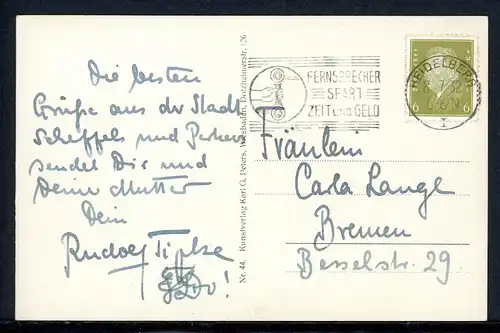 Die besten
Grüße aus der Stadt
Scheffels und Perkeos
sendet Dir und
Deine Mutter
Dein
Rudolf
Nr. 44. Kunstverlag Karl G. Peters, Wiesbaden, Dotzheimerstr. 126
FERNSPRECHER
SPART
ZEIT und GELD
HEIDELBERG
6 6
Fräulein
Carla Lange
Bremen
Besselstr. 29.